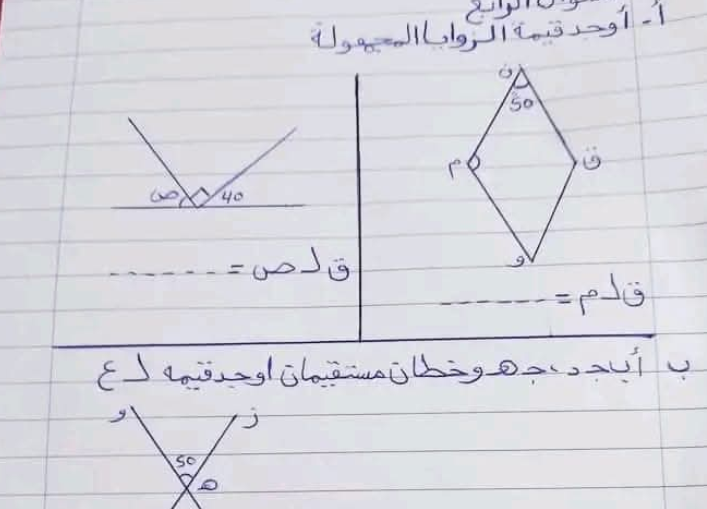 أ- أوجد قيمة الزوايا المجهولة
ن
50
م
ق
و
ق ∠ م = ------
ص
40
ق ∠ ص = ------
ب أ ب ج د ، ج هـ و خطان مستقيمان اوجد قيمه ∠ ع
و
ز
50
هـ